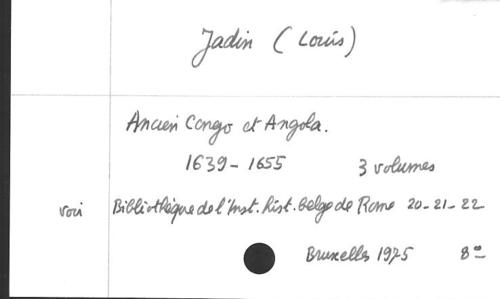 Jadin (Louis)
Ancien Congo et Angola.
1639-1655 3 volumes
voir Bibliothèque de l'Inst. hist. belge de Rome 20-21-22
Bruxelles 1975 8°